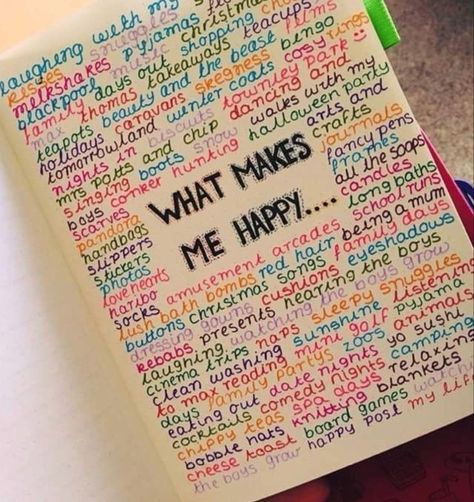 laughing with my
kisses snuggles
milkshakes pyjamas christmas
blackpool music chocolate teacups
family days out shopping films
max thomas takeaways bingo rings
teapots beauty and the beast cosy
holidays caravans skegness
tomorrowland winter coats townley park
nights in biscuits dancing and
mrs potts and chip walks with my
singing boots snow halloween party
boys conker hunting arts and
scarves crafts
pandora journals
handbags fancy pens
slippers frames
stickers all the soaps
photos candles
love hearts long baths
haribo school runs
socks amusement arcades being a mum
lush bath bombs red hair family days
buttons christmas songs eyeshadows
dressing gowns cushions the boys
kebabs presents hearing the boys
laughing watching the boys grow
cinema trips naps sleepy snuggles
clean washing sunshine listening
to max reading mini golf pyjama
days family partys zoos animals
eating out date nights yo sushi
cocktails comedy nights camping
chippy teas spa days relaxing
bobble hats knitting blankets
cheese toast board games watching
the boys grow happy post my life
WHAT MAKES
ME HAPPY.....